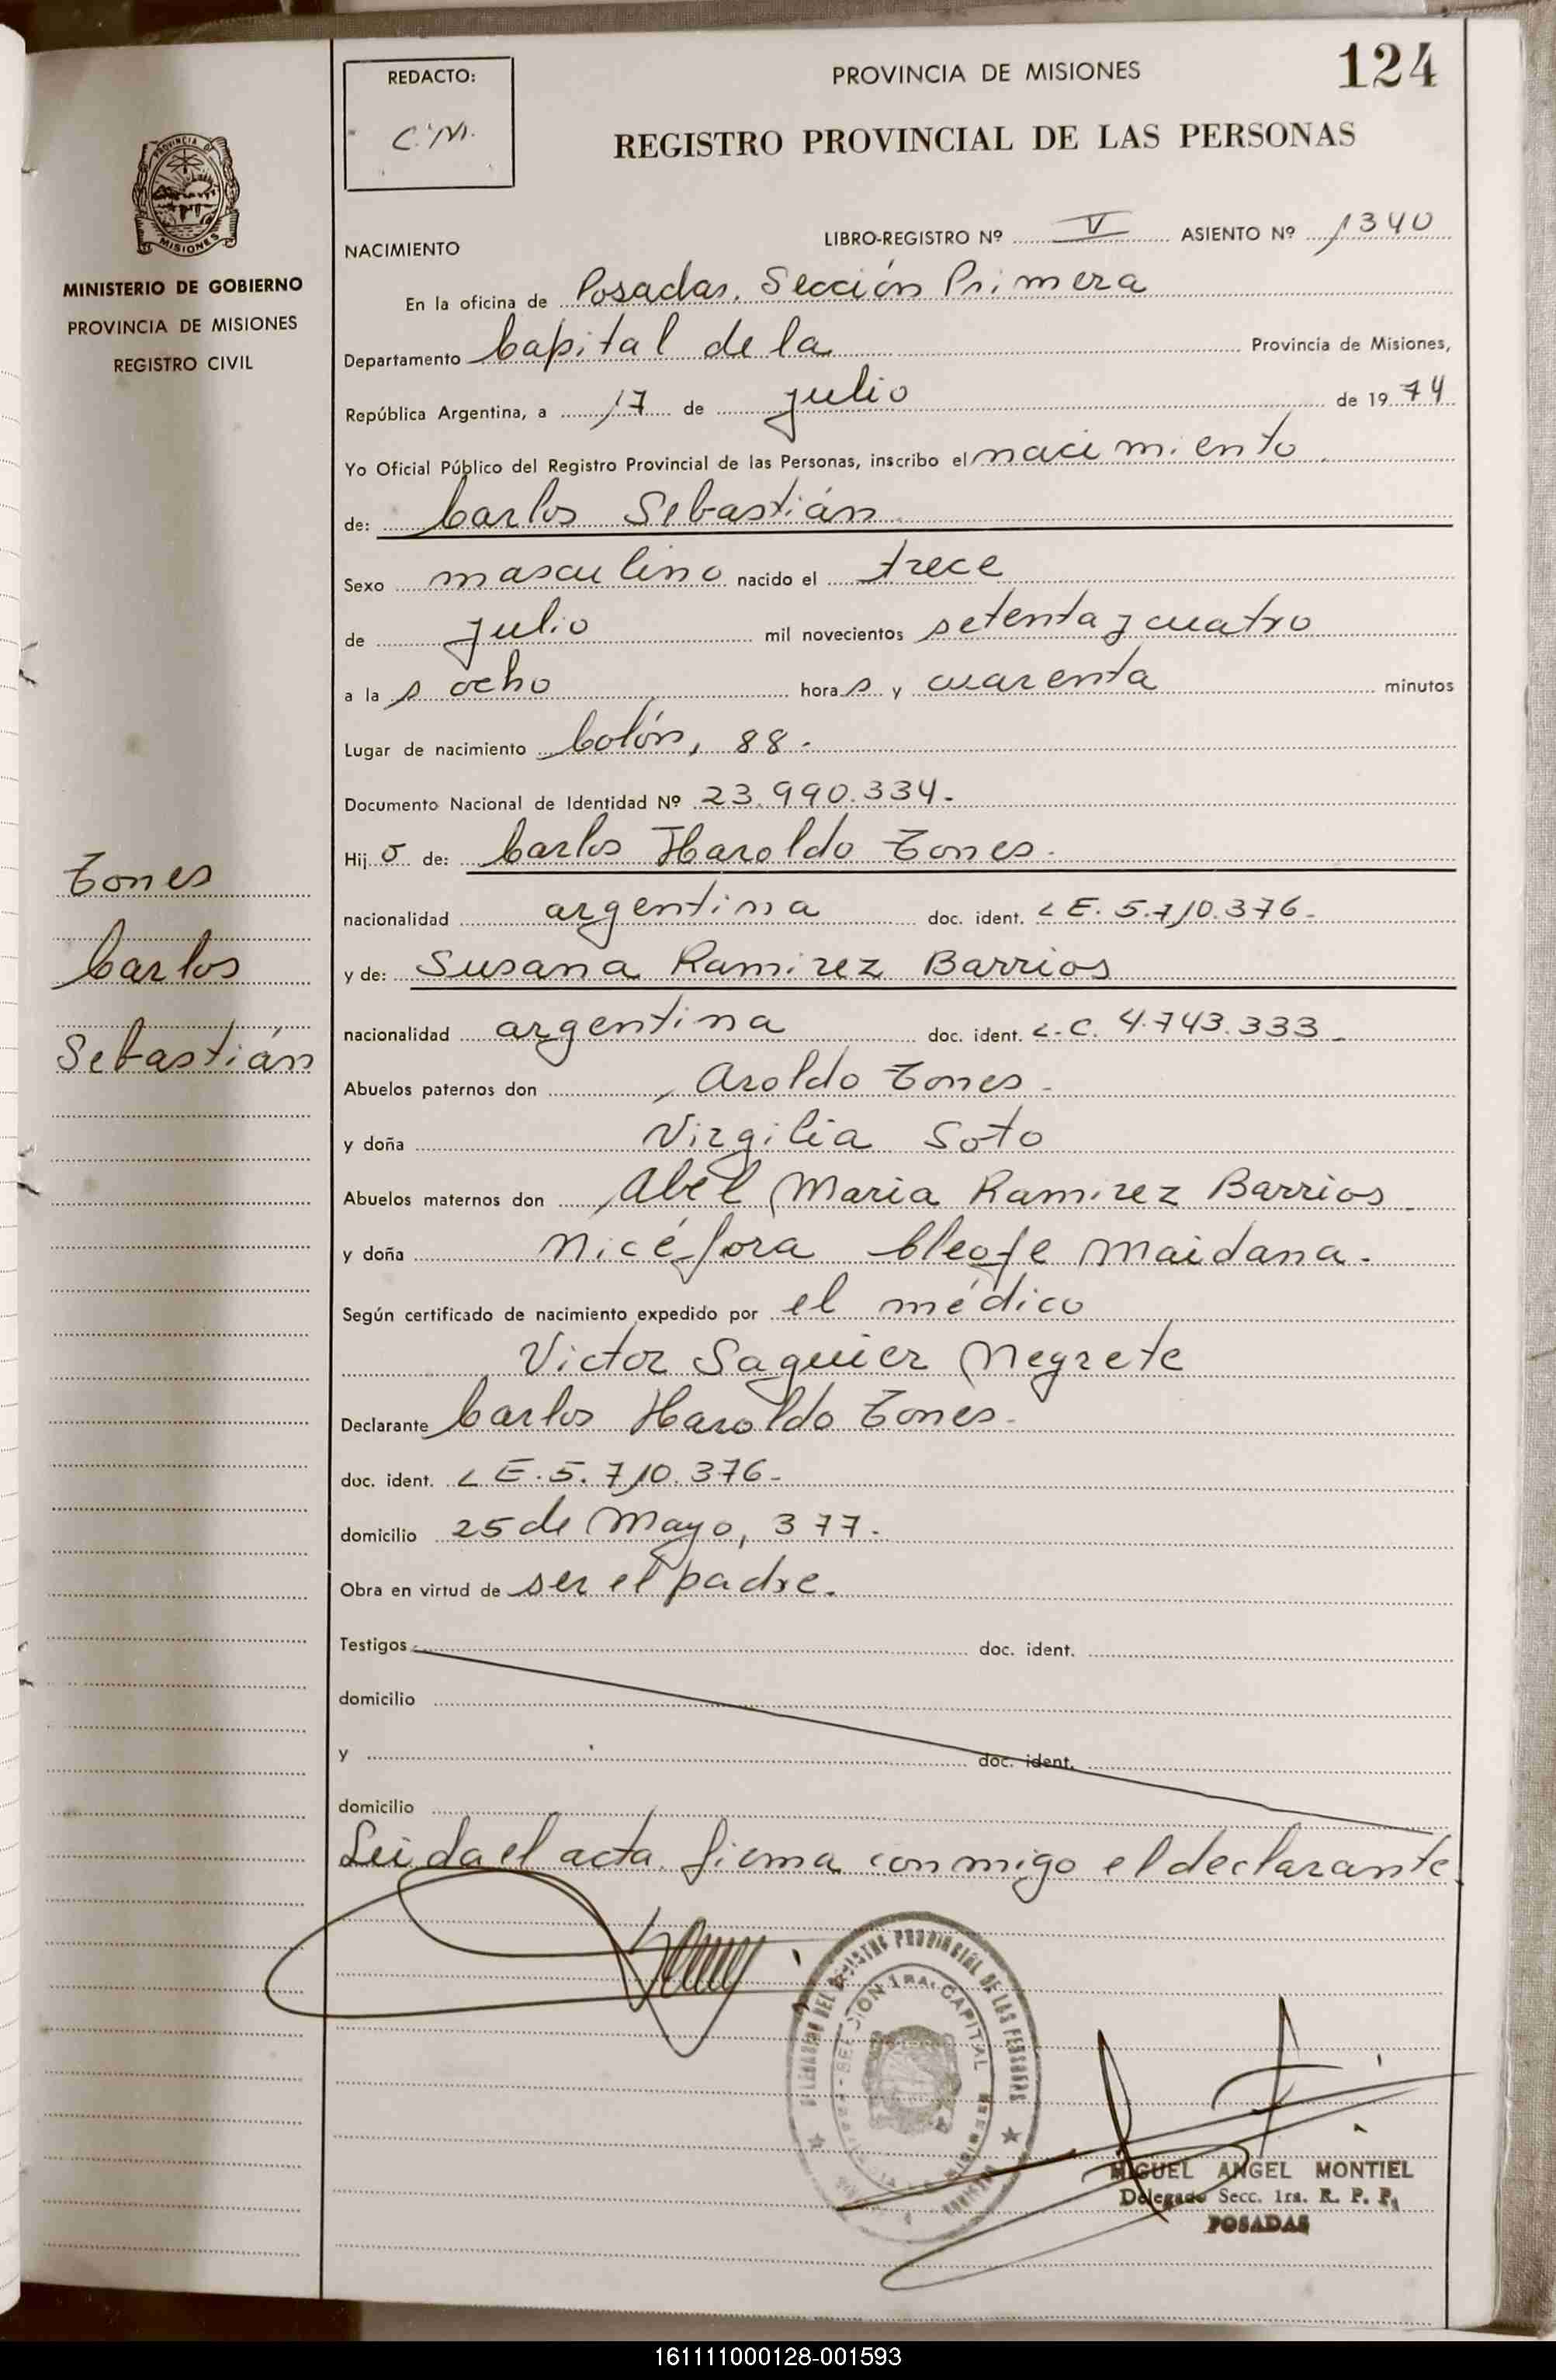 REDACTO:
C.M.
PROVINCIA DE MISIONES
124
REGISTRO PROVINCIAL DE LAS PERSONAS
PROVINCIA
MISIONES
MINISTERIO DE GOBIERNO
PROVINCIA DE MISIONES
REGISTRO CIVIL
NACIMIENTO
LIBRO-REGISTRO Nº V ASIENTO Nº 1340
En la oficina de Posadas, Sección Primera
Departamento Capital de la Provincia de Misiones,
República Argentina, a 17 de julio de 1974
Yo Oficial Público del Registro Provincial de las Personas, inscribo el nacimiento
de: Carlos Sebastián
Sexo masculino nacido el trece
de julio mil novecientos setenta y cuatro
a las ocho horas y cuarenta minutos
Lugar de nacimiento Colón, 88.
Documento Nacional de Identidad Nº 23.990.334.
Hijo de: Carlos Haroldo Tones.
nacionalidad argentina doc. ident. L E. 5.710.376.
y de: Susana Ramirez Barrios
nacionalidad argentina doc. ident. L.C. 4.743.333.
Abuelos paternos don Aroldo Tones.
y doña Virgilia Soto
Abuelos maternos don Abel Maria Ramirez Barrios
y doña Nicéfora Cleofe Maidana.
Según certificado de nacimiento expedido por el médico
Victor Saguier Negrete
Declarante Carlos Haroldo Tones.
doc. ident. L E. 5.710.376.
domicilio 25 de Mayo, 377.
Obra en virtud de ser el padre.
Testigos doc. ident.
domicilio
y doc. ident.
domicilio
Leida el acta firma conmigo el declarante.
Tones
Carlos
Sebastián
DELEGACION DEL REGISTRO PROVINCIAL DE LAS PERSONAS
SECCION 1RA. CAPITAL
MIGUEL ANGEL MONTIEL
Delegado Secc. 1ra. R. P. P.
POSADAS
161111000128-001593